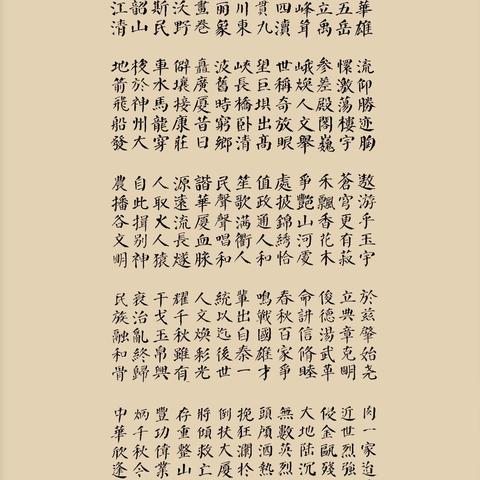 華雄
五岳
立禹
峰茸
四瀆
貫九
川東
丽象
畫卷
沃野
斯民
韶山
江清
流仰勝迹胸
懷激荡樓宇
参差殿閣巍
峨焕人文舉
世稱奇放眼
望巨垻出高
峽長橋卧清
波舊時窮鄉
矗廣廈昔日
僻壤接康莊
車水馬龍穿
梭於神州大
地箭飛船發
遨游乎玉宇
蒼穹更有菽
禾飄香花木
爭艷山河處
處披錦綉恰
值政通人和
笙歌滿衢人
民聲聲唱和
諧華厦血脉
源遠流長燧
人取火人猿
自此揖别神
農播谷文明
於兹肇始尧
立典章克明
俊德湯武革
命講信脩睦
春秋百家爭
鳴戰國雄才
輩出自秦一
統以迄後世
人文焕彩光
耀千秋雖有
干戈玉帛興
衰治亂終歸
民族融和骨
肉一家迨
近世烈強
侵金甌殘
大地陸沉
無數英烈
頭顱洒熱
挽狂瀾於
倒扶大厦
將傾救立
存重整山
豐功偉業
炳千秋今
中華欣逢